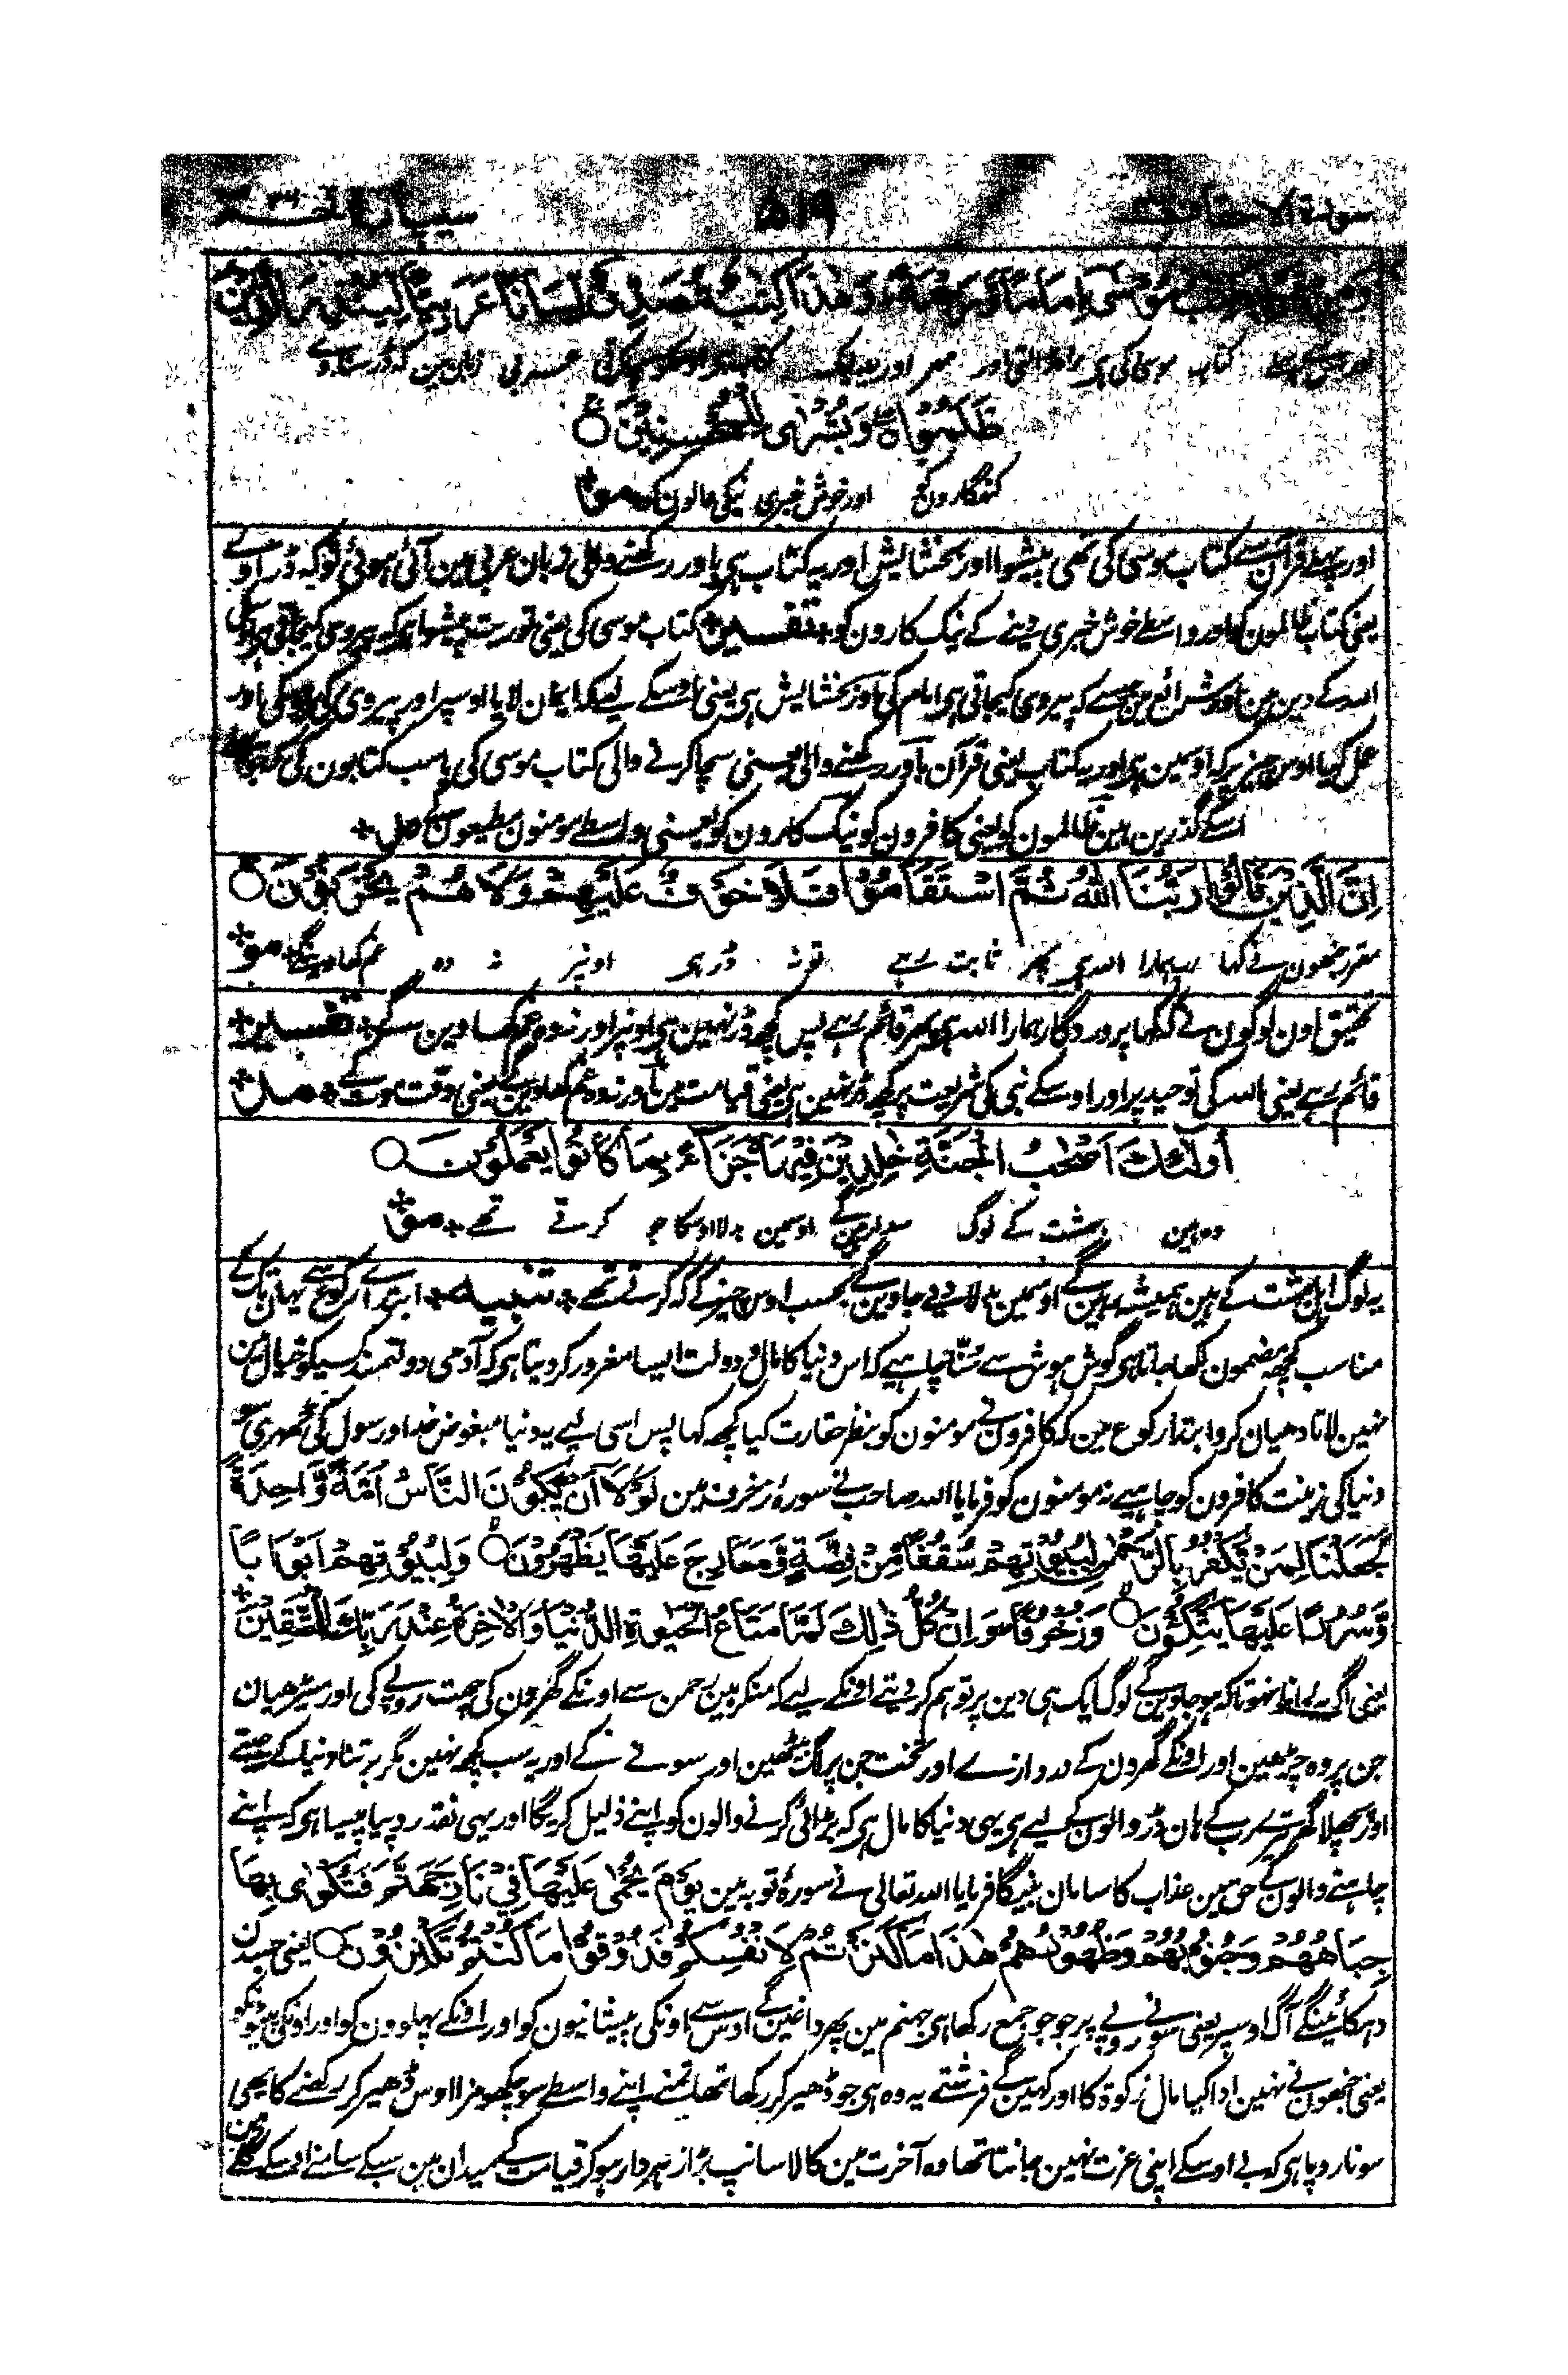 سورة الاحقاف ۵۱۹ سیپارہ حٰم ۲۶
وَمِنْ قَبْلِهٖ كِتٰبُ مُوْسٰۤى اِمَامًا وَّرَحْمَةً وَهٰذَا كِتٰبٌ مُّصَدِّقٌ لِّسَانًا عَرَبِيًّا لِّيُنْذِرَ الَّذِيْنَ
اور اس سے پہلے کتاب موسی کی ہی راہ ڈالتی اور مہر اور یہ ایک کتاب ہی اوسکو سچا کرتی عربی زبان مین کہ ڈر سناوے
ظَلَمُوْا وَبُشْرٰى لِلْمُحْسِنِيْنَ
گنہگارون کو اور خوش خبری نیکی والون کو مو
اور پہلے قرآن سے کتاب موسی کی تھی پیشوا اور بخشایش اور یہ کتاب ہی باور رکھنے والی زبان عربی مین آئی ہوئی توکہ ڈراوے
یعنی کتاب ظالمون کو اور واسطے خوش خبری دینے کے نیک کارون کو تفسیر کتاب موسی کی یعنی توریت پیشوا ہی کہ پیروی کیجاتی ہی اوسکی
اللہ کے دین مین اور شرائع مین جیسے کہ پیروی کیجاتی ہی امام کی اور بخشایش ہی یعنی اوسکے لیے کہ ایمان لایا اوسپر اور پیروی کی اوسکی اور
عمل کیا اوس چیز پر کہ اوسمین ہی اور یہ کتاب یعنی قرآن باور رکھنے والی یعنی سچا کرنے والی کتاب موسی کی یا سب کتابون کی کہ
اسکے گذرین ہین ظالمون کو یعنی کافرون کو نیک کارون کو یعنی واسطے مومنون مطیعون کے مل
اِنَّ الَّذِيْنَ قَالُوْا رَبُّنَا اللّٰهُ ثُمَّ اسْتَقَامُوْا فَلَا خَوْفٌ عَلَيْهِمْ وَلَا هُمْ يَحْزَنُوْنَ
مقرر جنھون نے کہا رب ہمارا اللہ ہی پھر ثابت رہے تو نہ ڈر ہی اونپر نہ وہ غم کھاوینگے مو
تحقیق اون لوگون نے کہ کہا پروردگار ہمارا اللہ ہی پھر قائم رہے پس کچھ ڈر نہین ہی اونپر اور نہ وہ غم کھاوین گے تفسیر
قائم رہے یعنی اللہ کی توحید پر اور اوسکے نبی کی شریعت پر کچھ ڈر نہین ہی یعنی قیامت مین اور نہ وہ غم کھاوین گے یعنی وقت موت کے مل
اُولٰٓئِكَ اَصْحٰبُ الْجَنَّةِ خٰلِدِيْنَ فِيْهَا جَزَآءً بِمَا كَانُوْا يَعْمَلُوْنَ
وہ ہین بہشت کے لوگ سدا رہین گے اوسمین بدلا اوسکا جو کرتے تھے مو
یہ لوگ اہل بہشت کے ہین ہمیشہ رہین گے اوسمین بدلا دیے جاوین گے بحسب اوس چیز کے کہ کرتے تھے تنبیہ ابتدائے رکوع سے یہان تک کے
مناسب کچھ مضمون لکھا جاتا ہی گوش ہوش سے سننا چاہیے کہ اس دنیا کا مال و دولت ایسا مغرور کر دیتا ہی کہ آدمی دولتمند کسیکو خیال مین
نہین لاتا دھیان کرو ابتدار کوع مین کہ کافرون نے مومنون کو بنظر حقارت کیا کچھ کہا پس اسی لیے یہ دنیا مبغوض خدا اور رسول کی ٹھہری ہی
دنیا کی زینت کافرون کو چاہیے نہ مومنون کو فرمایا اللہ صاحب نے سورۂ زخرف مین لَوْلَا اَنْ يَّكُوْنَ النَّاسُ اُمَّةً وَّاحِدَةً
لَّجَعَلْنَا لِمَنْ يَّكْفُرُ بِالرَّحْمٰنِ لِبُيُوْتِهِمْ سُقُفًا مِّنْ فِضَّةٍ وَّمَعَارِجَ عَلَيْهَا يَظْهَرُوْنَ وَلِبُيُوْتِهِمْ اَبْوَابًا
وَّسُرُرًا عَلَيْهَا يَتَّكِئُوْنَ وَزُخْرُفًا وَاِنْ كُلُّ ذٰلِكَ لَمَّا مَتَاعُ الْحَيٰوةِ الدُّنْيَا وَالْاٰخِرَةُ عِنْدَ رَبِّكَ لِلْمُتَّقِيْنَ
یعنی اگر یہ لحاظ نہوتا کہ ہو جاوین گے لوگ ایک ہی دین پر تو ہم کر دیتے اونکے لیے کہ منکر ہین رحمن سے اونکے گھرون کی چھت روپے کی اور سیڑھیان
جن پر وہ چڑھین اور اونکے گھرون کے دروازے اور تخت جن پر لگ بیٹھین اور سونے کے اور یہ سب کچھ نہین مگر برتنا دنیا کے جیتے
اور پچھلا گھر تیرے رب کے ہان ڈر والون کے لیے ہی یہی دنیا کا مال ہی کہ بڑائی کرنے والون کو اپنے ذلیل کریگا اور یہی نقد روپیا پیسا ہی کہ اپنے
چاہنے والون کے حق مین عذاب کا سامان بنیگا فرمایا اللہ تعالی نے سورۂ توبہ مین يَوْمَ يُحْمٰى عَلَيْهَا فِيْ نَارِ جَهَنَّمَ فَتُكْوٰى بِهَا
جِبَاهُهُمْ وَجُنُوْبُهُمْ وَظُهُوْرُهُمْ هٰذَا مَا كَنَزْتُمْ لِاَنْفُسِكُمْ فَذُوْقُوْا مَا كُنْتُمْ تَكْنِزُوْنَ یعنی جسدن
دہکائینگے آگ اوسپر یعنی سونے روپے پر جو جو جمع رکھا ہی جہنم مین پھر داغین گے اوس سے اونکی پیشانیون کو اور اونکے پہلوون کو اور اونکی پیٹھونکو
یعنی جنھون نے نہین ادا کیا مال زکوۃ کا اور کہین گے فرشتے یہ وہ ہی جو ڈھیر کر رکھا تھا تمنے اپنے واسطے سو چکھو مزا اوس ڈھیر کر رکھنے کا یہی
سونا روپا ہی کہ بے اوسکے اپنی عزت نہین جانتا تھا وہ آخرت مین کالا سانپ بڑا زہردار ہو کر قیامت کے میدان مین سبکے سامنے اوسکے گلے مین